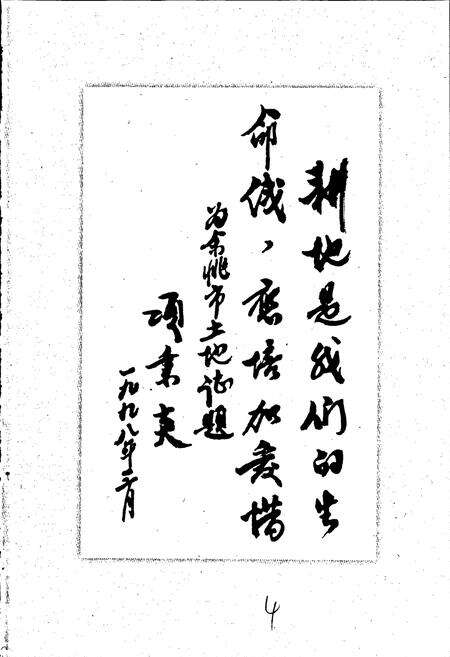 耕地是我们的生
命线，应倍加爱惜
为余姚市土地志题
项秉
一九九八年二月
4